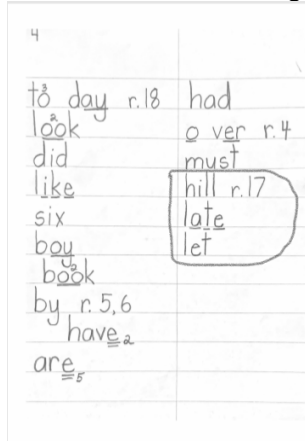 4
to day r.18
look
did
like
six
boy
book
by r. 5,6
have 2
are 5
had
o ver r.4
must
hill r.17
late
let